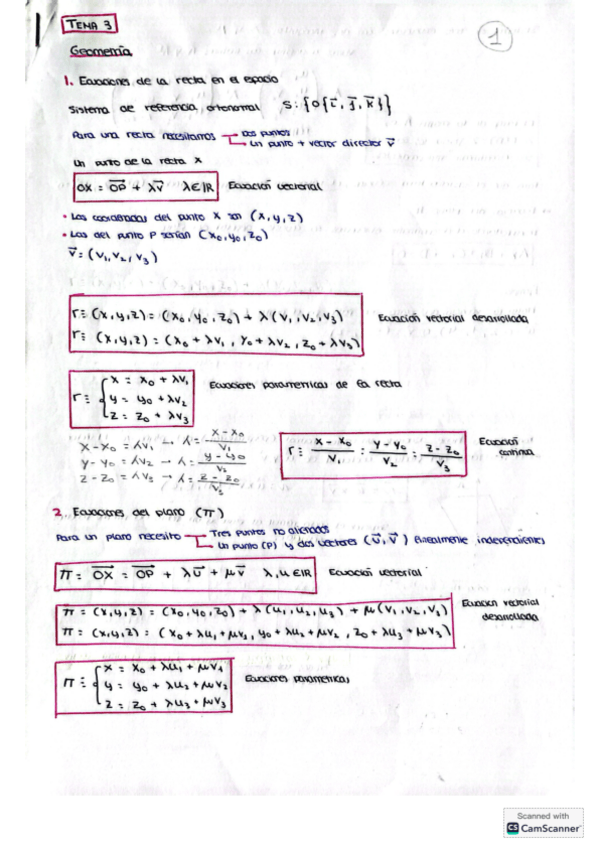 TEMA 3
1
Geometría
1. Ecuaciones de la recta en el espacio
Sistema de referencia ortonormal S: {O{i⃗, j⃗, k⃗}}
Para una recta necesitamos → Dos puntos
→ Un punto + vector director v⃗
Un punto de la recta X
OX = OP⃗ + λv⃗ λ∈ℝ Ecuación vectorial
• Las coordenadas del punto X son (x,y,z)
• Las del punto P serían (x₀,y₀,z₀)
v⃗ = (v₁,v₂,v₃)
r≡ (x,y,z) = (x₀,y₀,z₀) + λ(v₁,v₂,v₃) Ecuación vectorial desarrollada
r≡ (x,y,z) = (x₀+λv₁, y₀+λv₂, z₀+λv₃)
r≡ { x = x₀ + λv₁ Ecuaciones parametricas de la recta
y = y₀ + λv₂
z = z₀ + λv₃
x-x₀ = λv₁ → λ = x-x₀/v₁
y-y₀ = λv₂ → λ = y-y₀/v₂
z-z₀ = λv₃ → λ = z-z₀/v₃
r≡ x-x₀/v₁ = y-y₀/v₂ = z-z₀/v₃ Ecuación continua
2. Ecuaciones del plano (π)
Para un plano necesito → Tres puntos no alineados
→ Un punto (P) y dos vectores (u⃗, v⃗) linealmente independientes
π = OX⃗ = OP⃗ + λu⃗ + μv⃗ λ,μ∈ℝ Ecuación vectorial
π = (x,y,z) = (x₀,y₀,z₀) + λ(u₁,u₂,u₃) + μ(v₁,v₂,v₃) Ecuacion vectorial desarrollada
π = (x,y,z) = (x₀+λu₁+μv₁, y₀+λu₂+μv₂, z₀+λu₃+μv₃)
π≡ { x = x₀ + λu₁ + μv₁ Ecuaciones parametricas
y = y₀ + λu₂ + μv₂
z = z₀ + λu₃ + μv₃
Scanned with
CS CamScanner